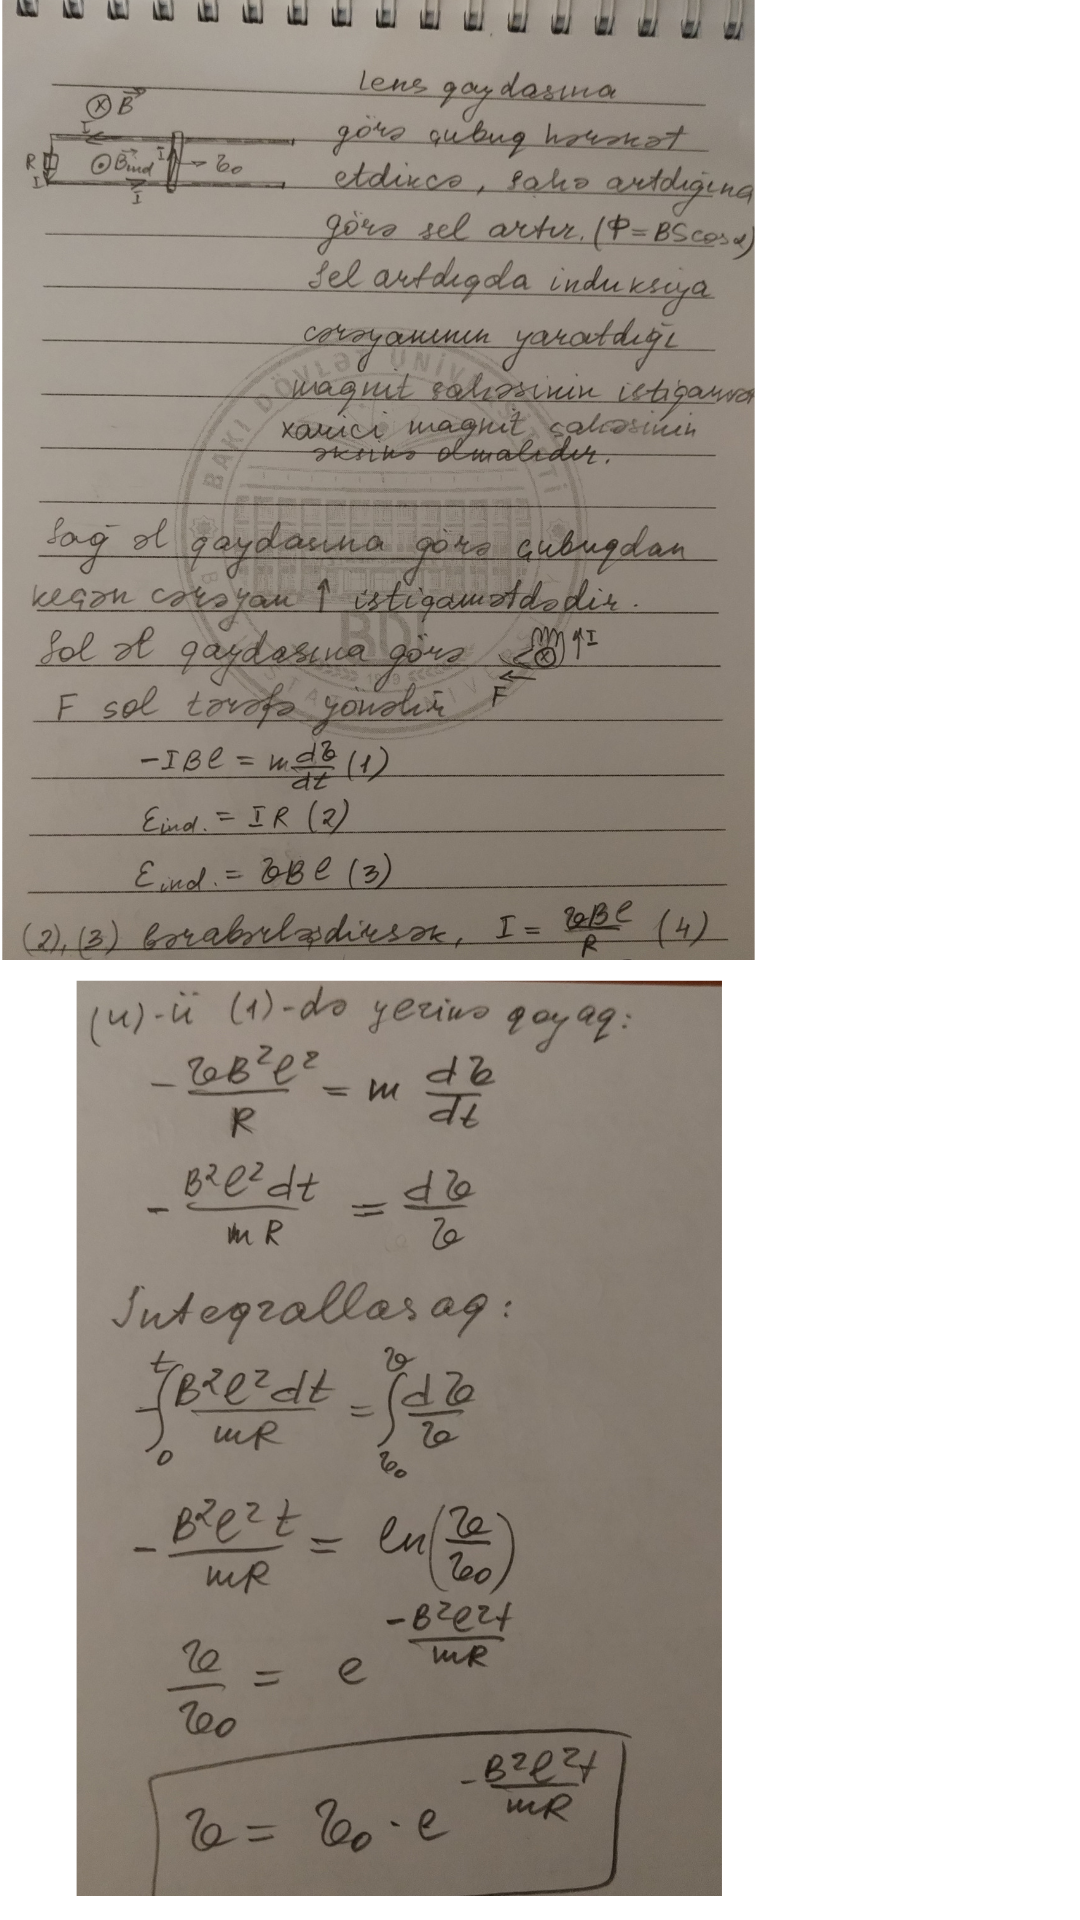 Lens qaydasına
⊗ B⃗
görə çubuq hərəkət
I
R ⊙ B⃗ind I → v₀
etdikcə, sahə artdığına
I I
görə sel artır. (Φ=BScosα)
Sel artdıqda induksiya
cərəyanının yaratdığı
maqnit sahəsinin istiqaməti
xarici maqnit sahəsinin
əksinə olmalıdır.
BAKI DÖVLƏT UNİVERSİTETİ
Sağ əl qaydasına görə çubuqdan
keçən cərəyan ↑ istiqamətdədir.
BDU
Sol əl qaydasına görə ⊗ ↑I
1919
F sol tərəfə yönəlir F
-IBl = m dv/dt (1)
εind. = IR (2)
εind. = vBl (3)
(2), (3) bərabərləşdirsək, I = vBl/R (4)
(4)-ü (1)-də yerinə qoyaq:
- vB²l²/R = m dv/dt
- B²l²dt/mR = dv/v
İnteqrallasaq:
-∫₀ᵗ B²l²dt/mR = ∫_{v₀}^{v} dv/v
- B²l²t/mR = ln(v/v₀)
v/v₀ = e^{-B²l²t/mR}
v = v₀ · e^{-B²l²t/mR}